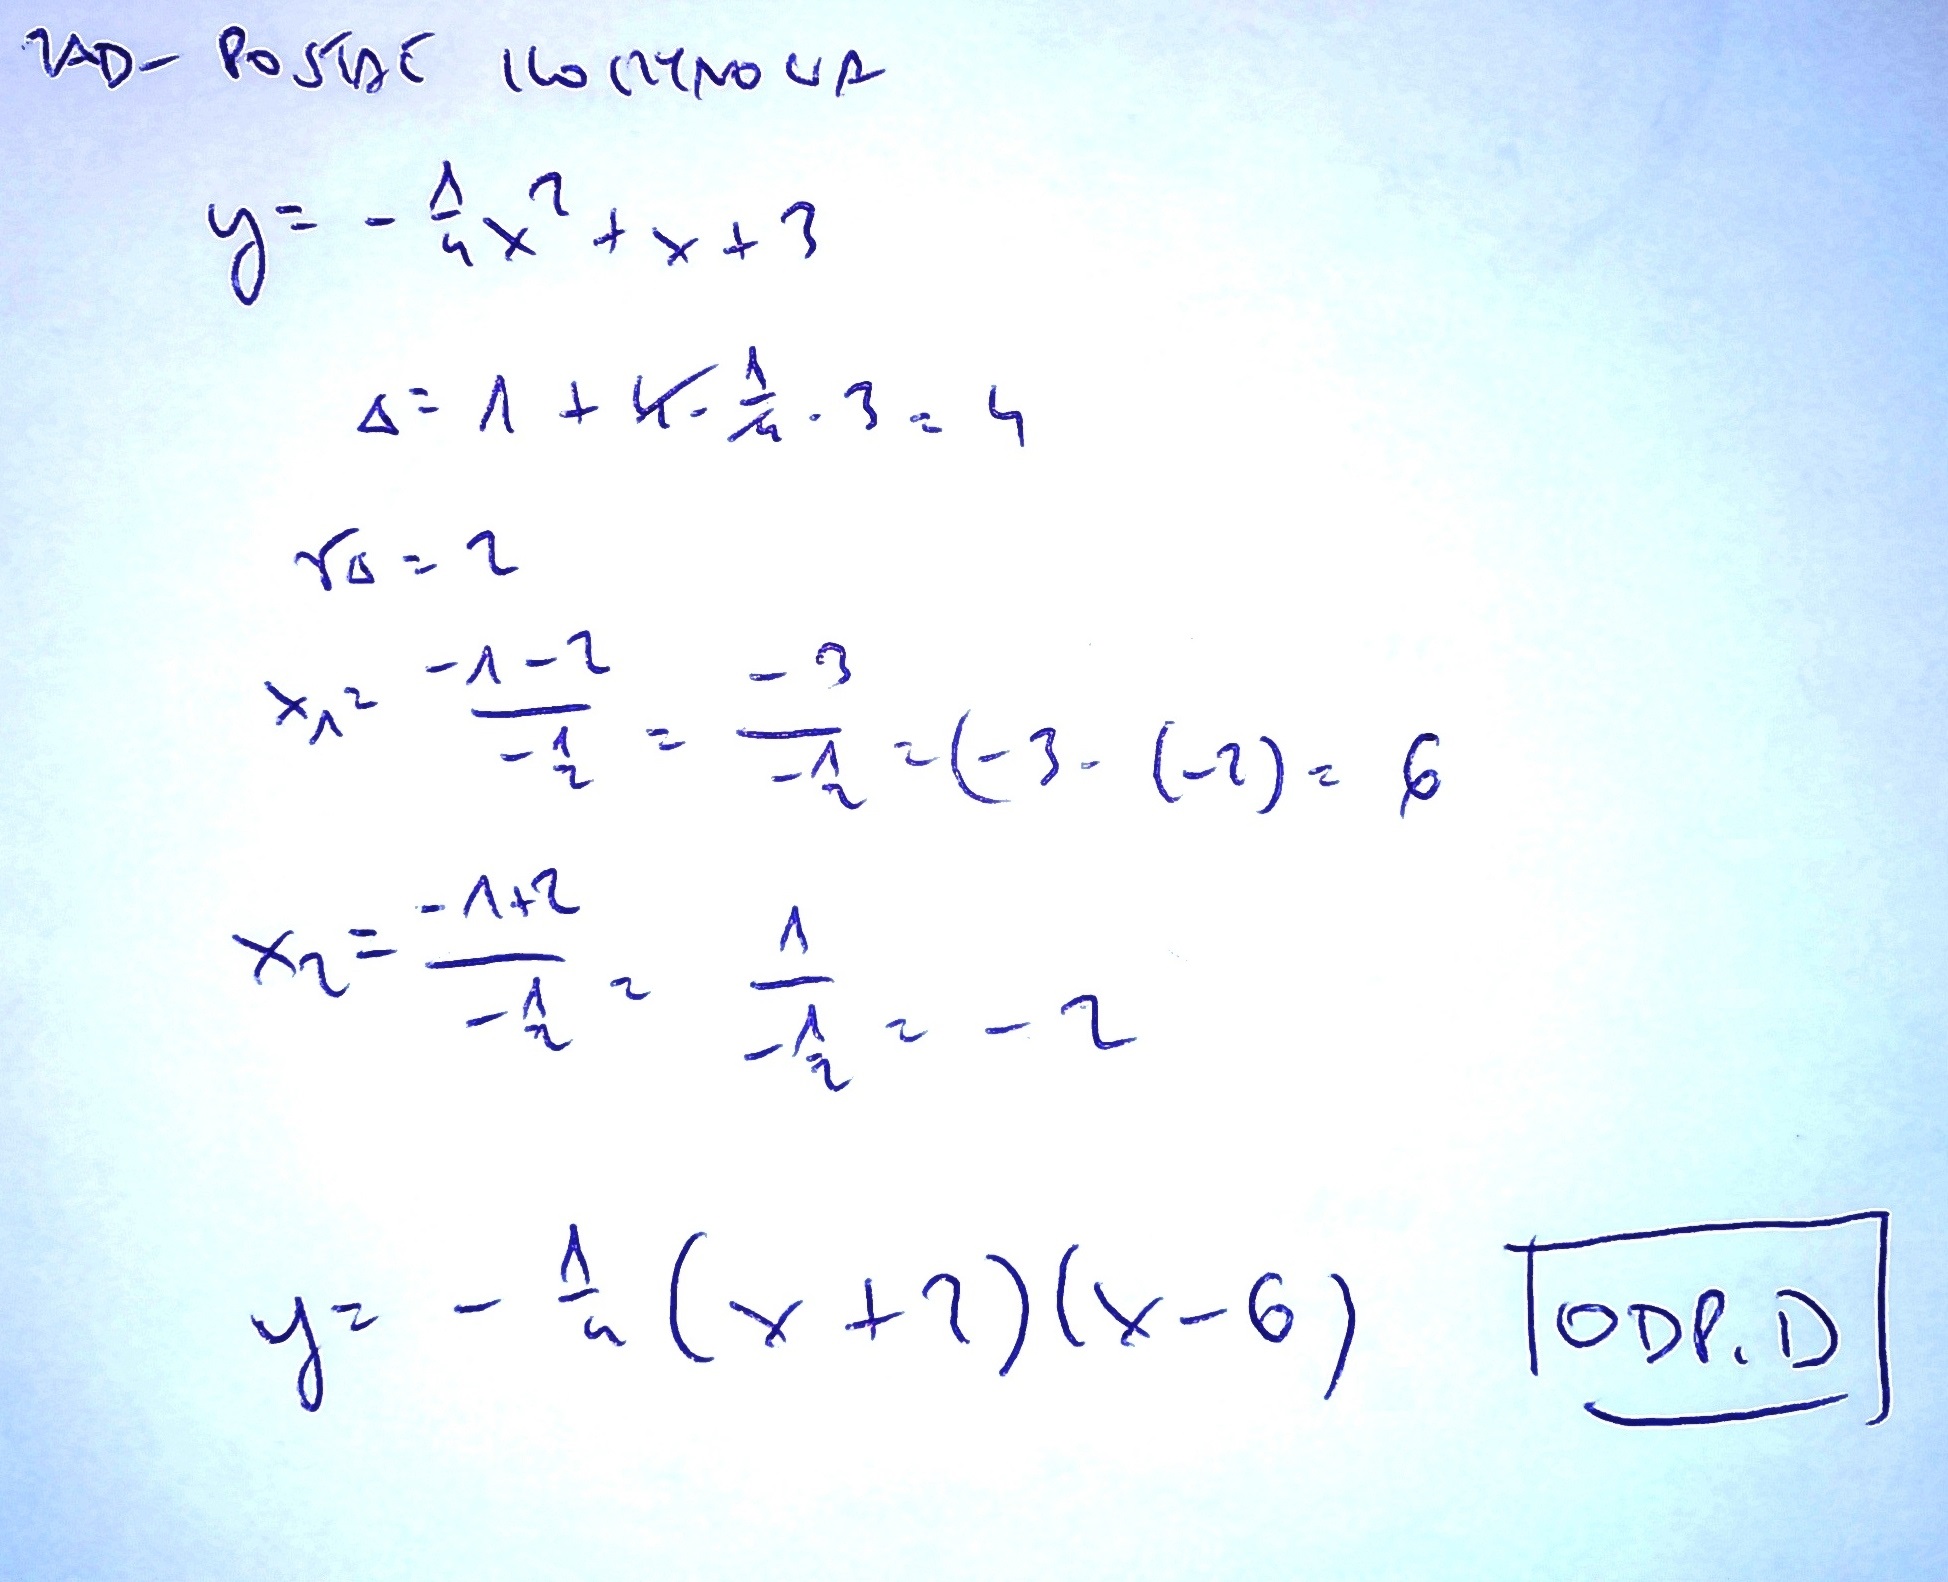 ZAD- POSTAĆ ILOCZYNOWA
y = - 1/4 x² + x + 3
Δ = 1 + 4 · 1/4 · 3 = 4
√Δ = 2
x₁ = (-1-2)/(-1/2) = (-3)/(-1/2) = (-3 · (-2) = 6
x₂ = (-1+2)/(-1/2) = 1/(-1/2) = -2
y = - 1/4 (x+2)(x-6) ODP. D